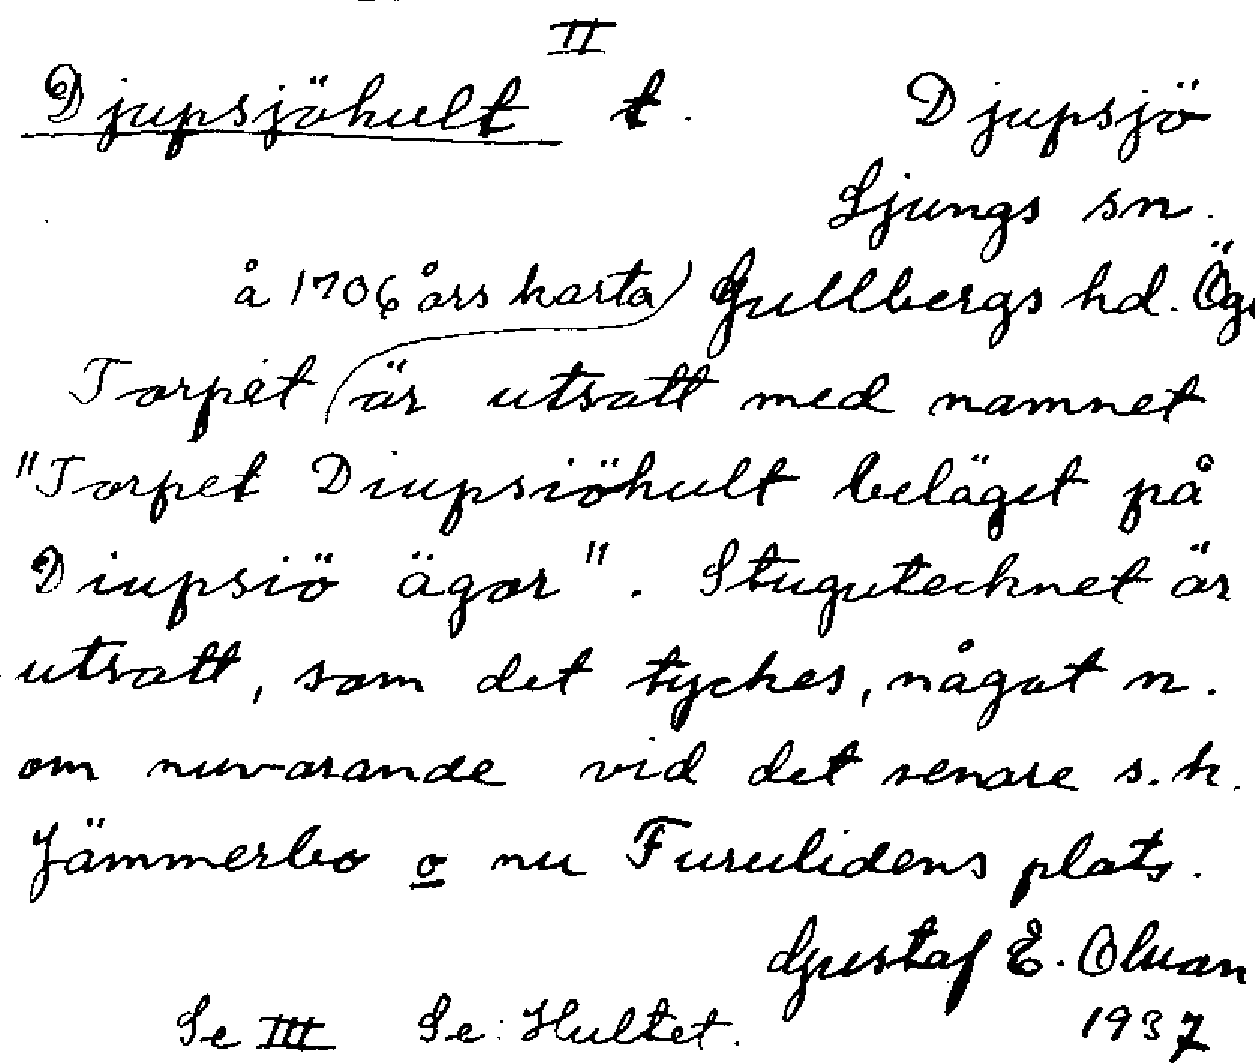 II
Djupsjöhult t. Djupsjö
Ljungs sn.
å 1706 års karta Gullbergs hd. Ög
Torpet är utsatt med namnet
"Torpet Diupsiöhult beläget på
Diupsiö ägor". Stugutecknet är
utsatt, som det tyckes, något n.
om nuvarande vid det senare s.k.
Jämmerbo o nu Furulidens plats.
Gustaf E. Olsson
Se III Se: Hultet. 1937